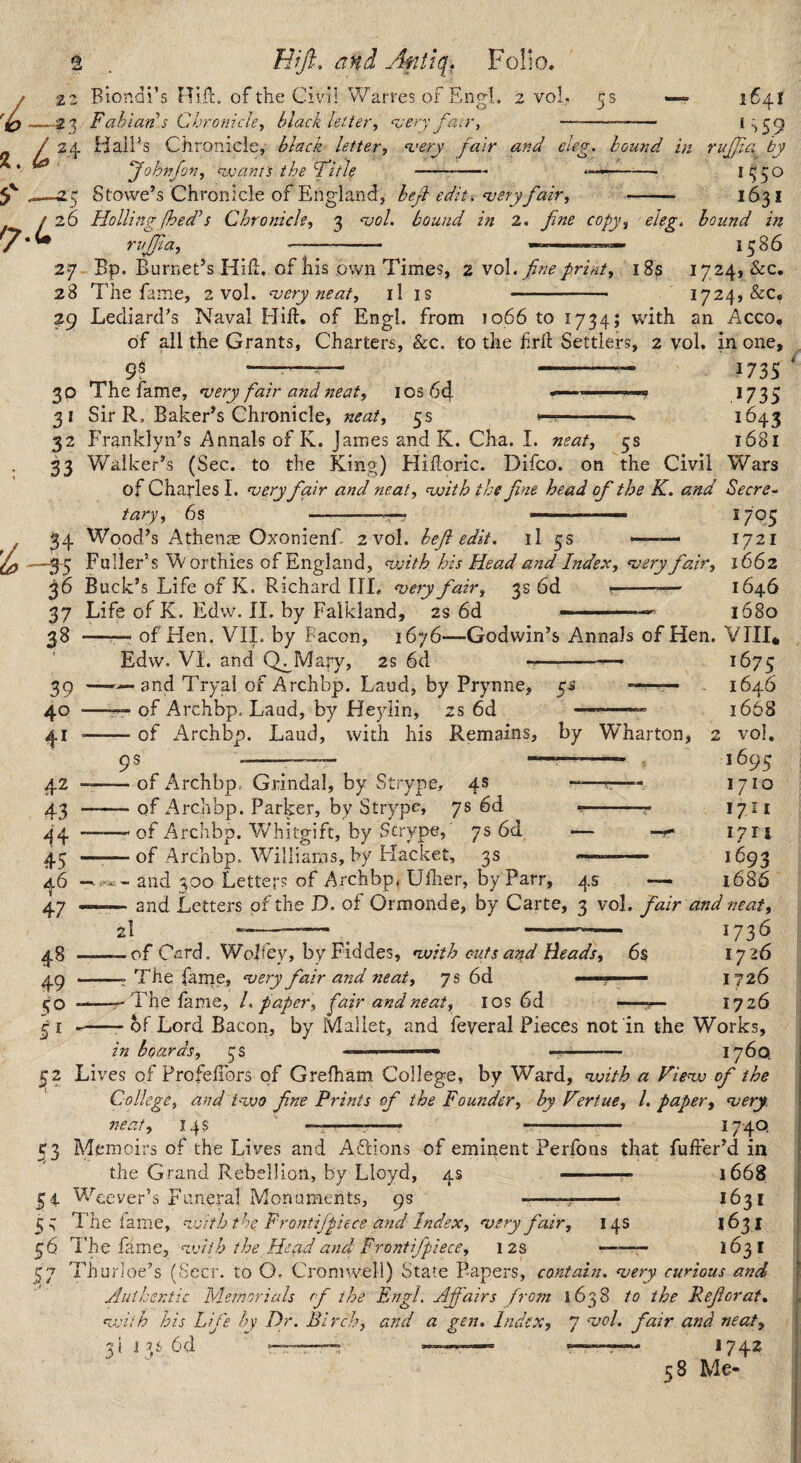 2 Hiſt. and Antiq. Folio.
22 Biondi's Hiſt. of the Civil Warres of Engl. 2 vol. 5s — 1641
23 Fabian's Chronicle, black letter, very fair, — 1559
24 Hall's Chronicle, black letter, very fair and eleg. bound in ruſſia, by
Johnſon, wants the Title — 1550
25 Stowe's Chronicle of England, beſt edit. very fair, — 1631
26 Hollingſhed's Chronicle, 3 vol. bound in 2. fine copy, eleg. bound in
ruſſia, — 1586
27 Bp. Burnet's Hiſt. of his own Times, 2 vol. fine print, 18s 1724, &c.
28 The ſame, 2 vol. very neat, 1l 1s — 1724, &c.
29 Lediard's Naval Hiſt. of Engl. from 1066 to 1734; with an Acco.
of all the Grants, Charters, &c. to the firſt Settlers, 2 vol. in one,
9s — 1735
30 The ſame, very fair and neat, 10s 6d — 1735
31 Sir R. Baker's Chronicle, neat, 5s — 1643
32 Franklyn's Annals of K. James and K. Cha. I. neat, 5s 1681
33 Walker's (Sec. to the King) Hiſtoric. Diſco. on the Civil Wars
of Charles I. very fair and neat, with the fine head of the K. and Secre-
tary, 6s — 1705
34 Wood's Athenæ Oxonienſ. 2 vol. beſt edit. 1l 5s — 1721
35 Fuller's Worthies of England, with his Head and Index, very fair, 1662
36 Buck's Life of K. Richard III. very fair, 3s 6d — 1646
37 Life of K. Edw. II. by Falkland, 2s 6d — 1680
38 — of Hen. VII. by Bacon, 1676—Godwin's Annals of Hen. VIII.
Edw. VI. and Q. Mary, 2s 6d — 1675
39 — and Tryal of Archbp. Laud, by Prynne, 5s — 1646
40 — of Archbp. Laud, by Heylin, 2s 6d — 1668
41 — of Archbp. Laud, with his Remains, by Wharton, 2 vol.
9s — 1695
42 — of Archbp. Grindal, by Strype, 4s — 1710
43 — of Archbp. Parker, by Strype, 7s 6d — 1711
44 — of Archbp. Whitgift, by Strype, 7s 6d — — 1711
45 — of Archbp. Williams, by Hacket, 3s — 1693
46 — and 300 Letters of Archbp. Uſher, by Parr, 4s — 1686
47 — and Letters of the D. of Ormonde, by Carte, 3 vol. fair and neat,
2l — 1736
48 — of Card. Wolſey, by Fiddes, with cuts and Heads, 6s 1726
49 — The ſame, very fair and neat, 7s 6d — 1726
50 — The ſame, l. paper, fair and neat, 10s 6d — 1726
51 — of Lord Bacon, by Mallet, and ſeveral Pieces not in the Works,
in boards, 5s — 1760
52 Lives of Profeſſors of Greſham College, by Ward, with a View of the
College, and two fine Prints of the Founder, by Vertue, l. paper, very
neat, 14s — 1740
53 Memoirs of the Lives and Actions of eminent Perſons that ſuffer'd in
the Grand Rebellion, by Lloyd, 4s — 1668
54 Weever's Funeral Monuments, 9s — 1631
55 The ſame, with the Frontiſpiece and Index, very fair, 14s 1631
56 The ſame, with the Head and Frontiſpiece, 12s — 1631
57 Thurloe's (Secr. to O. Cromwell) State Papers, contain. very curious and
Authentic Memorials of the Engl. Affairs from 1638 to the Reſtorat.
with his Life by Dr. Birch, and a gen. Index, 7 vol. fair and neat,
3l 13s 6d — 1742
58 Me-